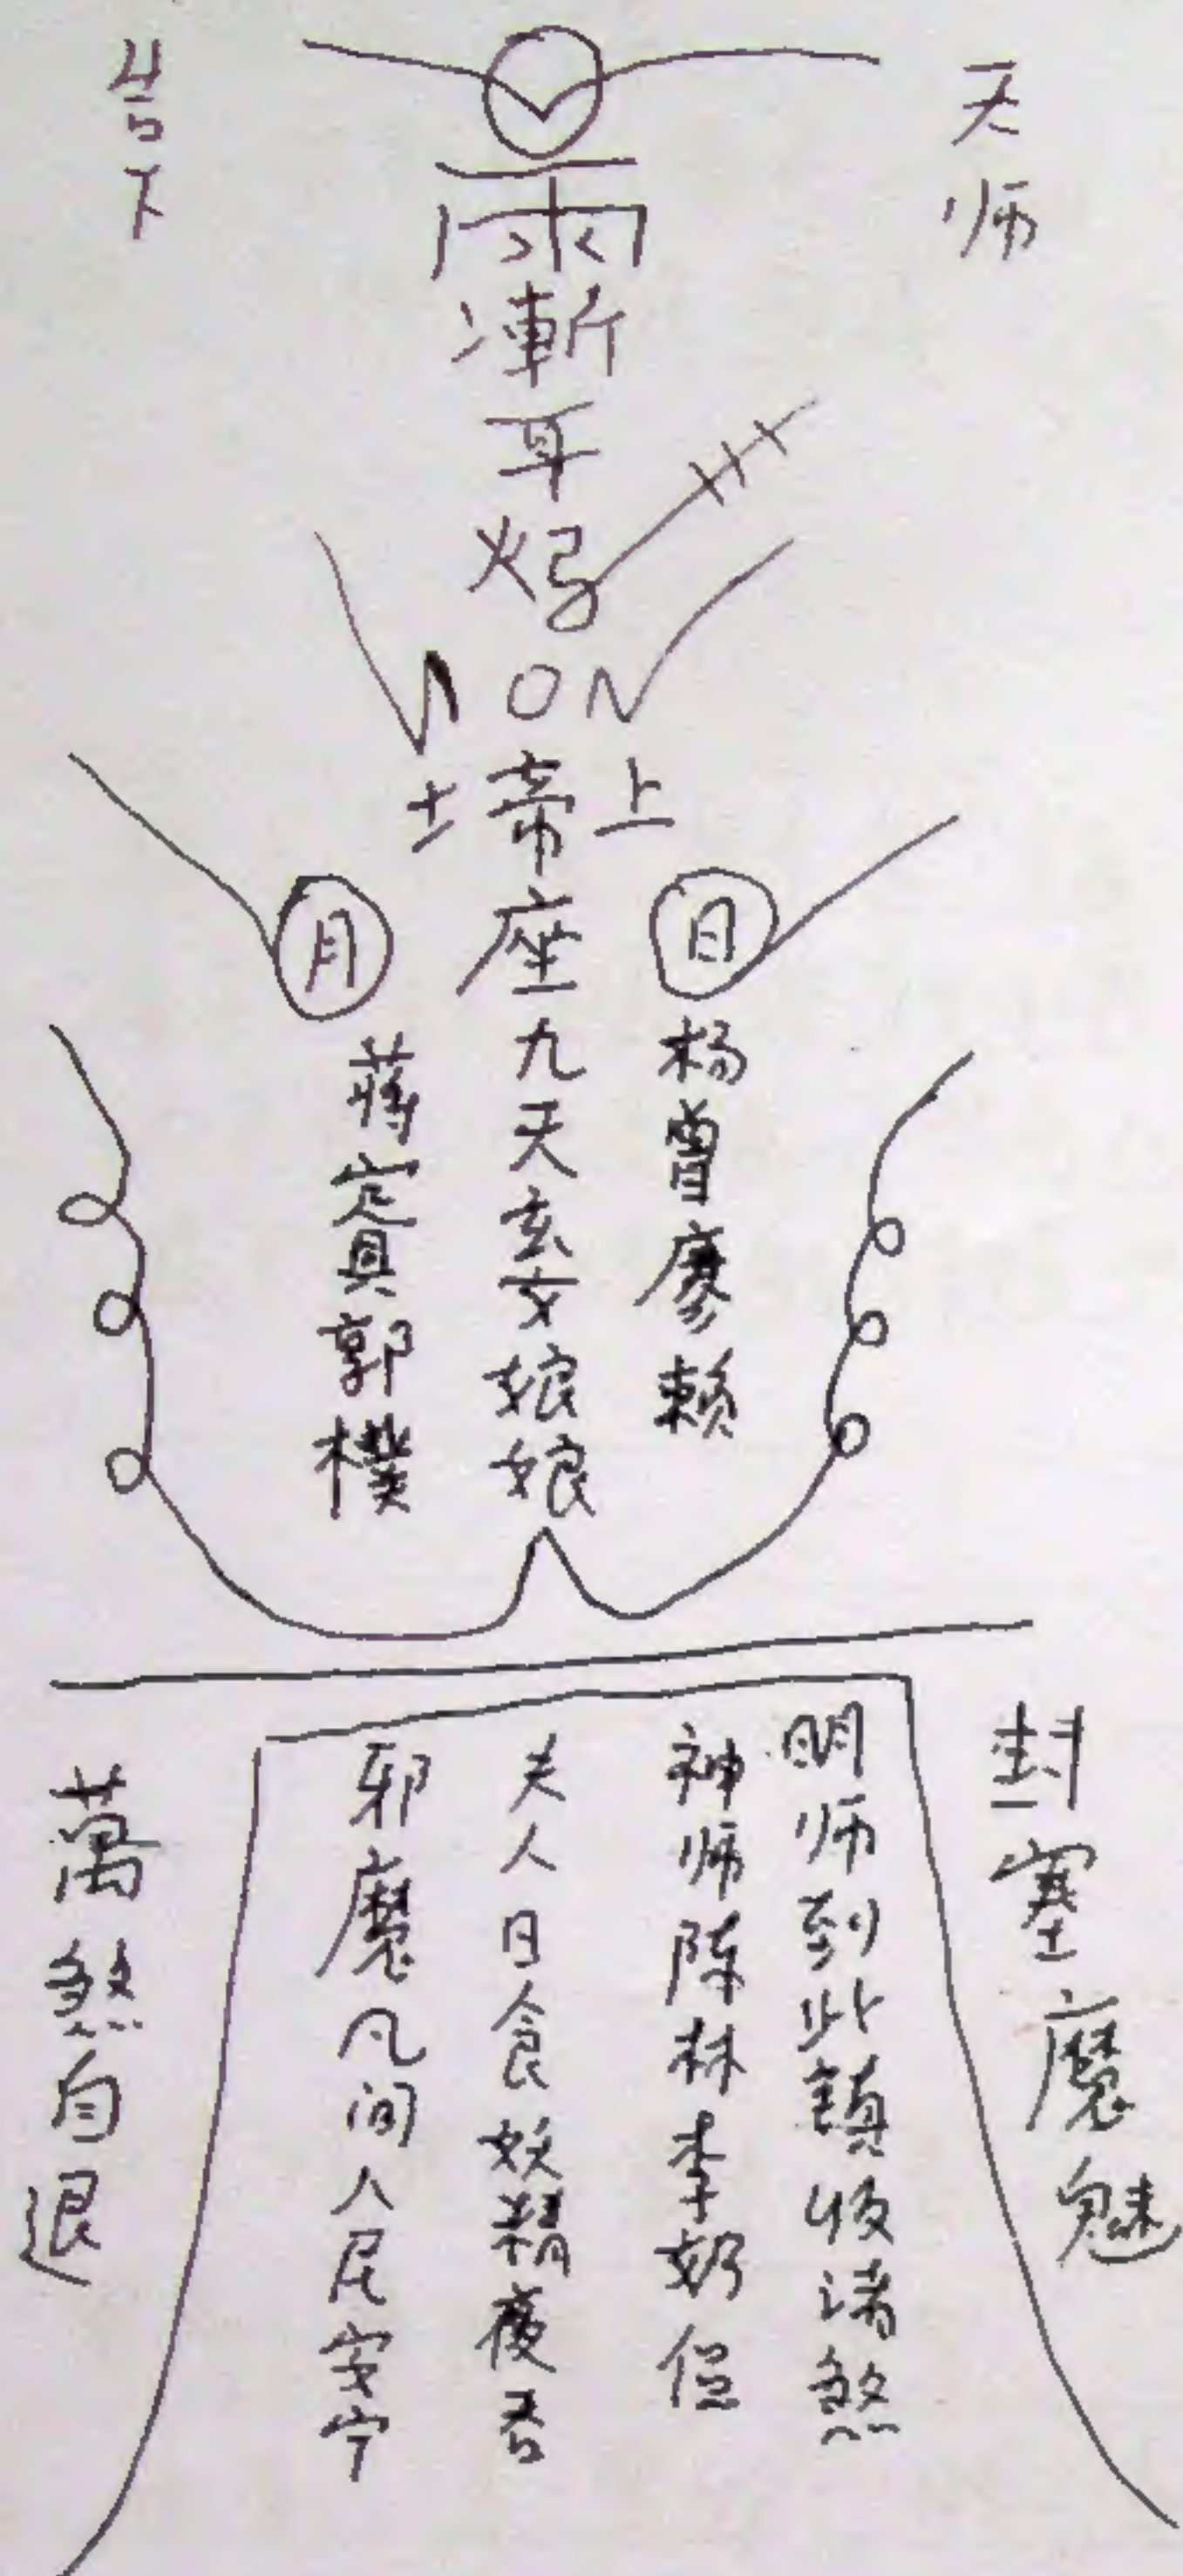 天师
雨漸耳
上
帝座九天玄女娘娘
日
月
杨曾廖赖
郭樸
封塞魔魅
明师到此鎮收诸煞
神师陈林李奶位
夫人日食妖精夜吞
邪魔凡间人民安宁
萬煞自退